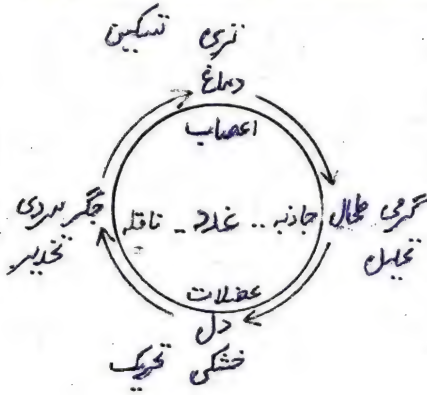 تری تسکین
دماغ
اعصاب
گرمی طحال جاذبہ .. غدد - ناقلہ جگر سردی
تحلیل تخدیر
عضلات
دل
خشکی تحریک